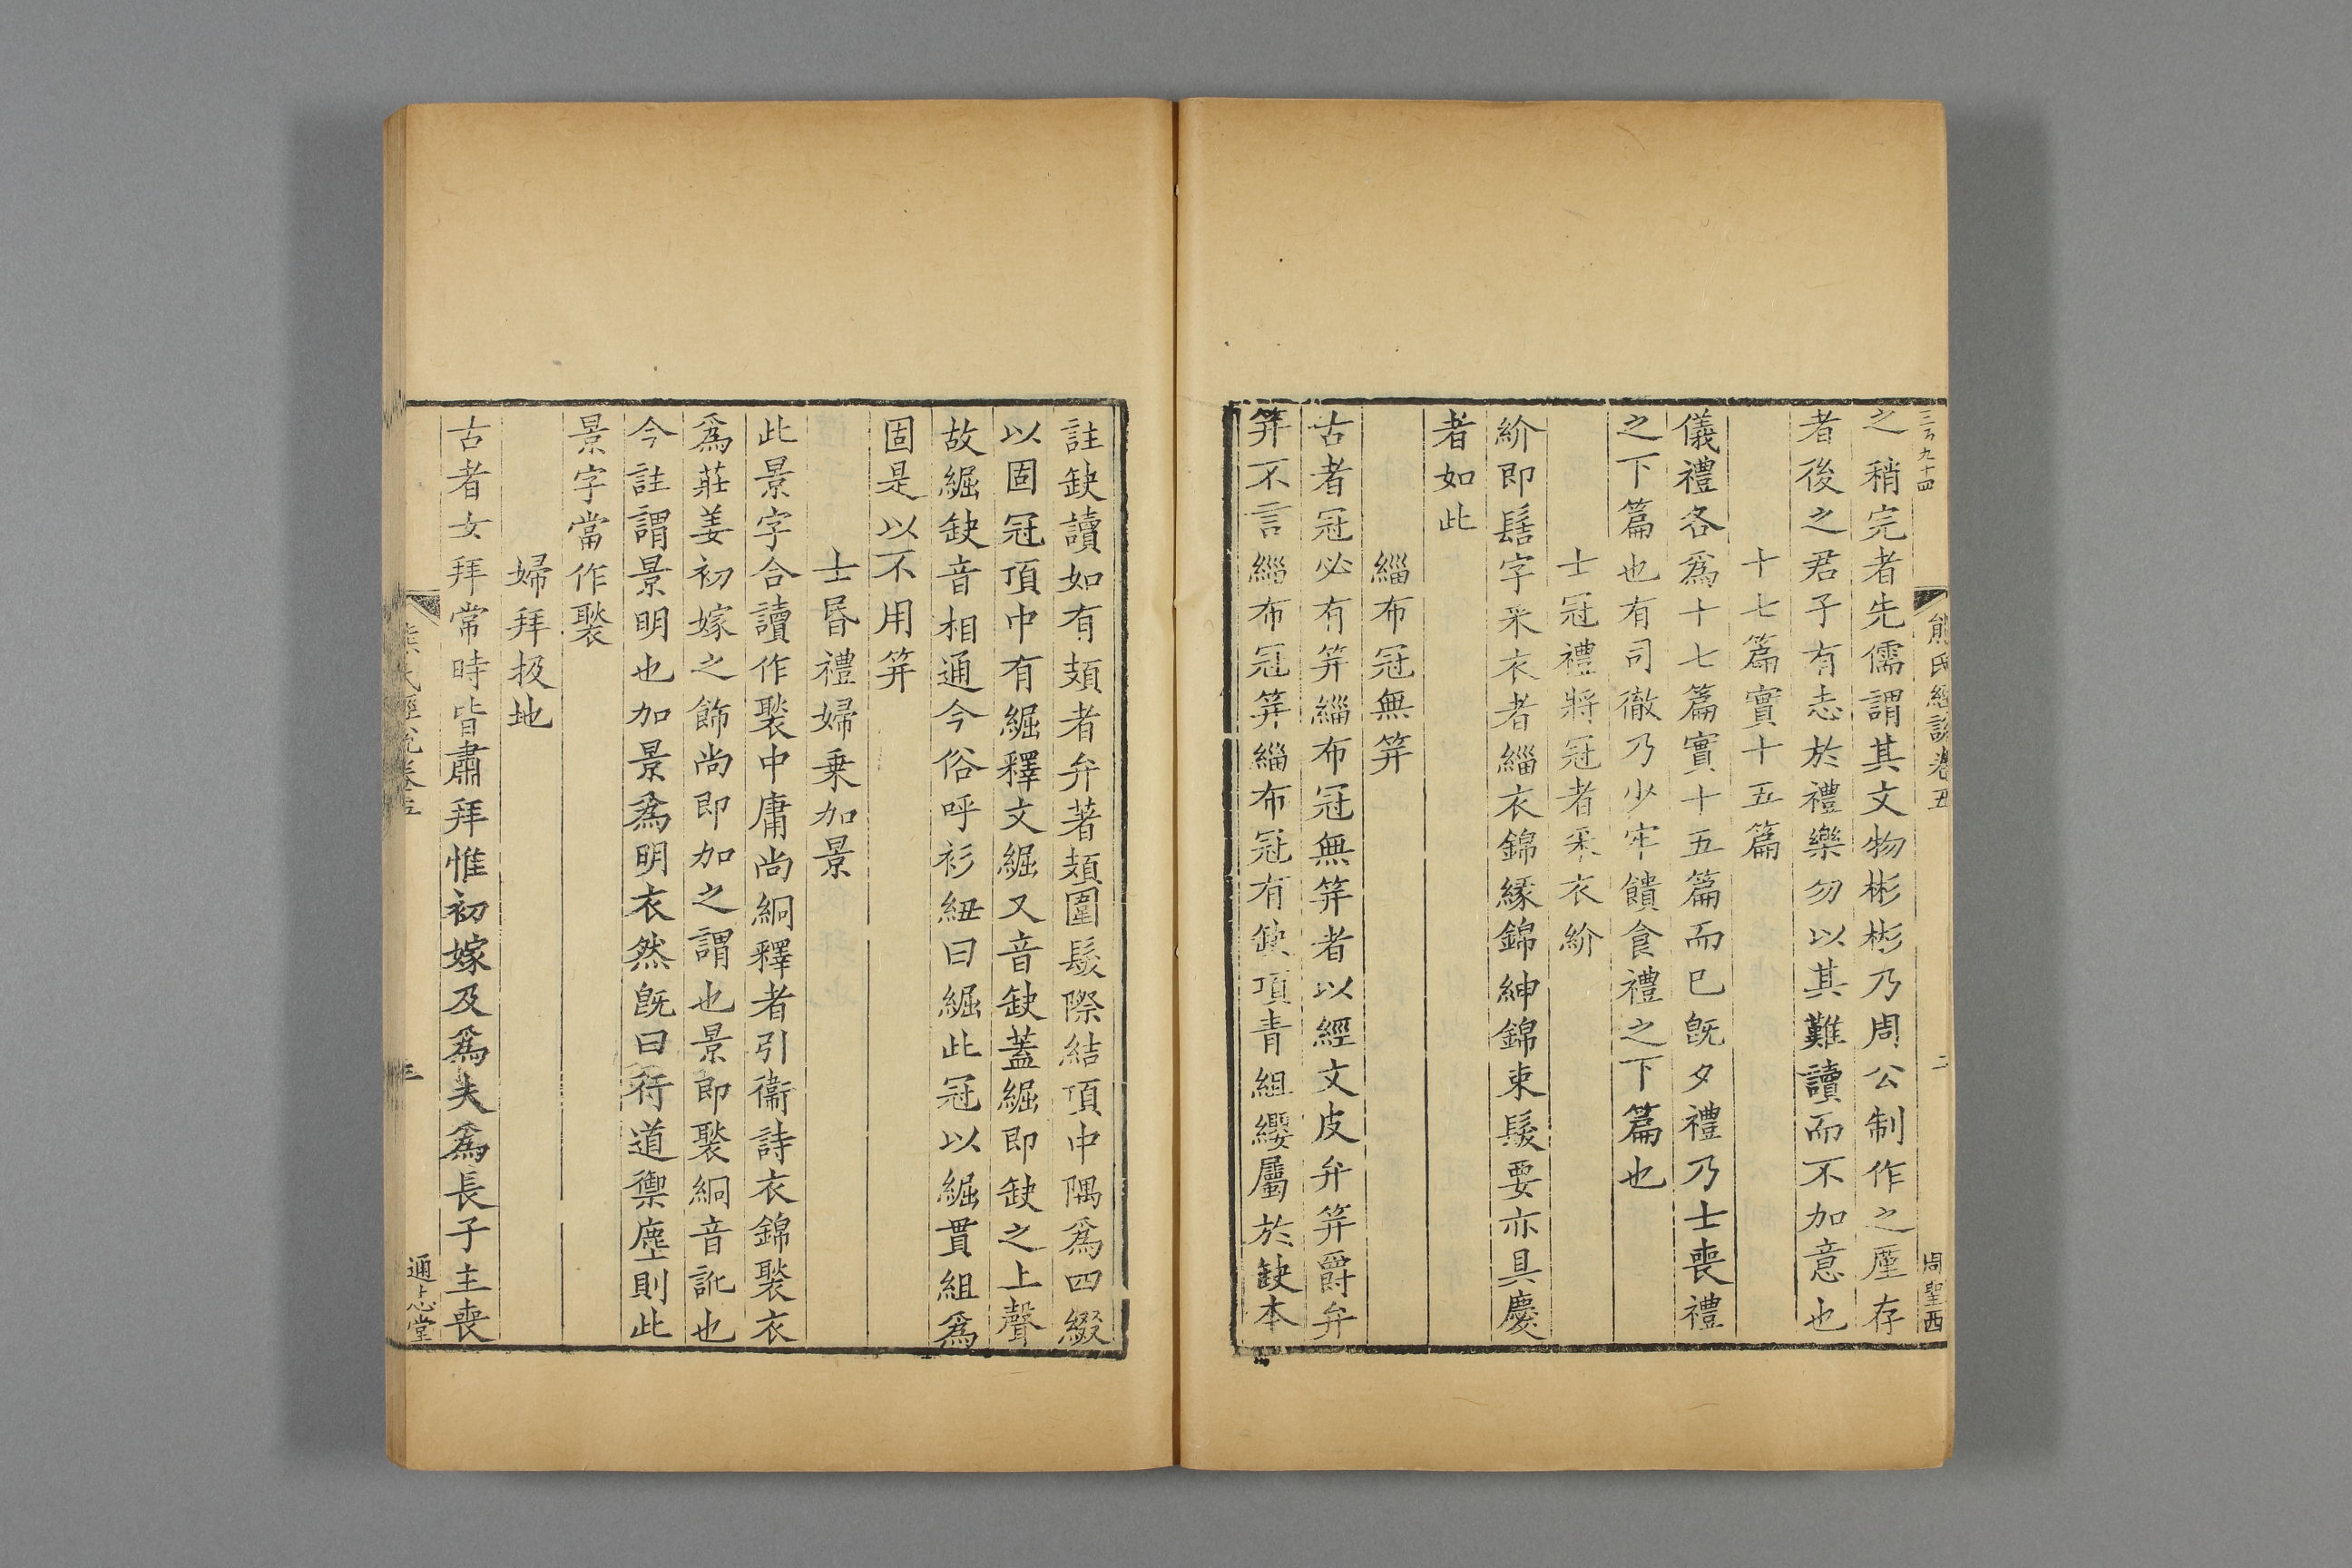 三百九十四
熊氏經說卷五
二
周聖西
之稍完者先儒謂其文物彬彬乃周公制作之廑存
者後之君子有志於禮樂勿以其難讀而不加意也
十七篇實十五篇
儀禮各爲十七篇實十五篇而巳旣夕禮乃士喪禮
之下篇也有司徹乃少牢饋食禮之下篇也
士冠禮將冠者采衣紒
紒即髻字采衣者緇衣錦緣錦紳錦束髮要亦具慶
者如此
緇布冠無笄
古者冠必有笄緇布冠無笄者以經文皮弁笄爵弁
笄不言緇布冠笄緇布冠有缺項青組纓屬於缺本
註缺讀如有頍者弁著頍圍髮際結項中隅爲四綴
以固冠項中有𦃆釋文𦃆又音缺蓋𦃆即缺之上聲
故𦃆缺音相通今俗呼衫紐曰𦃆此冠以𦃆貫組爲
固是以不用笄
士昏禮婦乗加景
此景字合讀作褧中庸尚絅釋者引衞詩衣錦褧衣
爲莊姜初嫁之飾尚即加之謂也景即褧絅音訛也
今註謂景明也加景爲明衣然旣曰行道禦塵則此
景字當作褧
婦拜扱地
古者女拜常時皆肅拜惟初嫁及爲夫爲長子主喪
熊氏經說卷五
三
通志堂